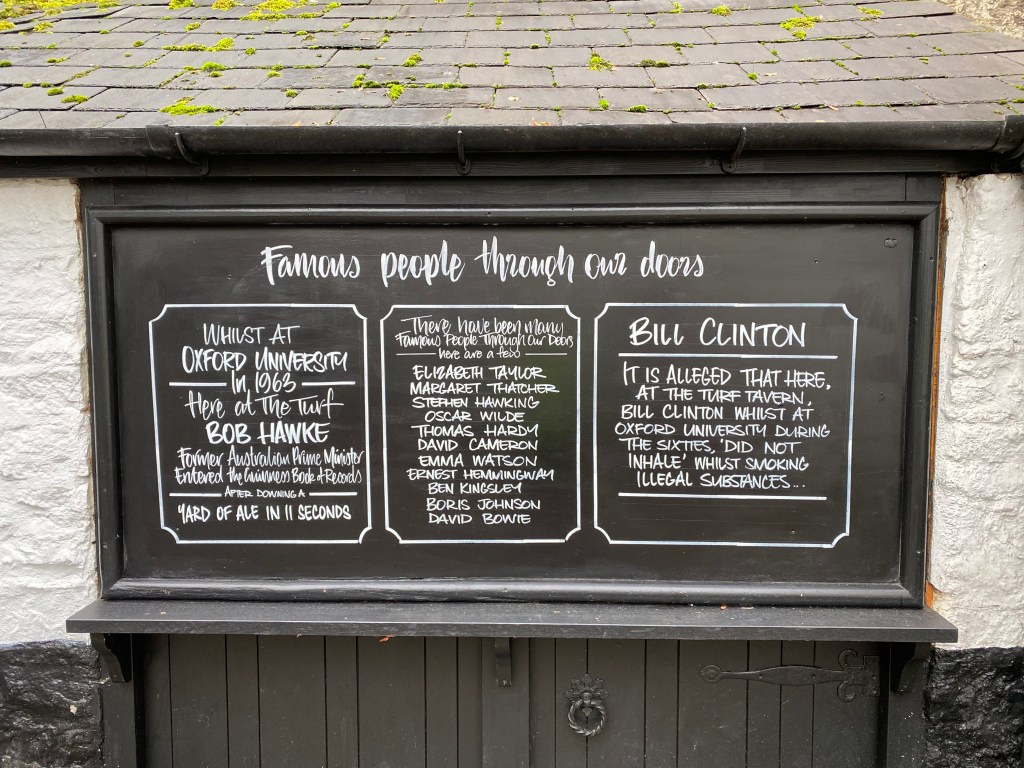 Famous people through our doors
WHILST AT
OXFORD UNIVERSITY
In 1963
Here at The Turf
BOB HAWKE
Former Australian Prime Minister
Entered the Guinness Book of Records
AFTER DOWNING A
YARD OF ALE IN 11 SECONDS
There have been many
Famous People Through Our Doors
here are a few
ELIZABETH TAYLOR
MARGARET THATCHER
STEPHEN HAWKING
OSCAR WILDE
THOMAS HARDY
DAVID CAMERON
EMMA WATSON
ERNEST HEMMINGWAY
BEN KINGSLEY
BORIS JOHNSON
DAVID BOWIE
BILL CLINTON
IT IS ALLEGED THAT HERE,
AT THE TURF TAVERN,
BILL CLINTON WHILST AT
OXFORD UNIVERSITY DURING
THE SIXTIES, 'DID NOT
INHALE' WHILST SMOKING
ILLEGAL SUBSTANCES...